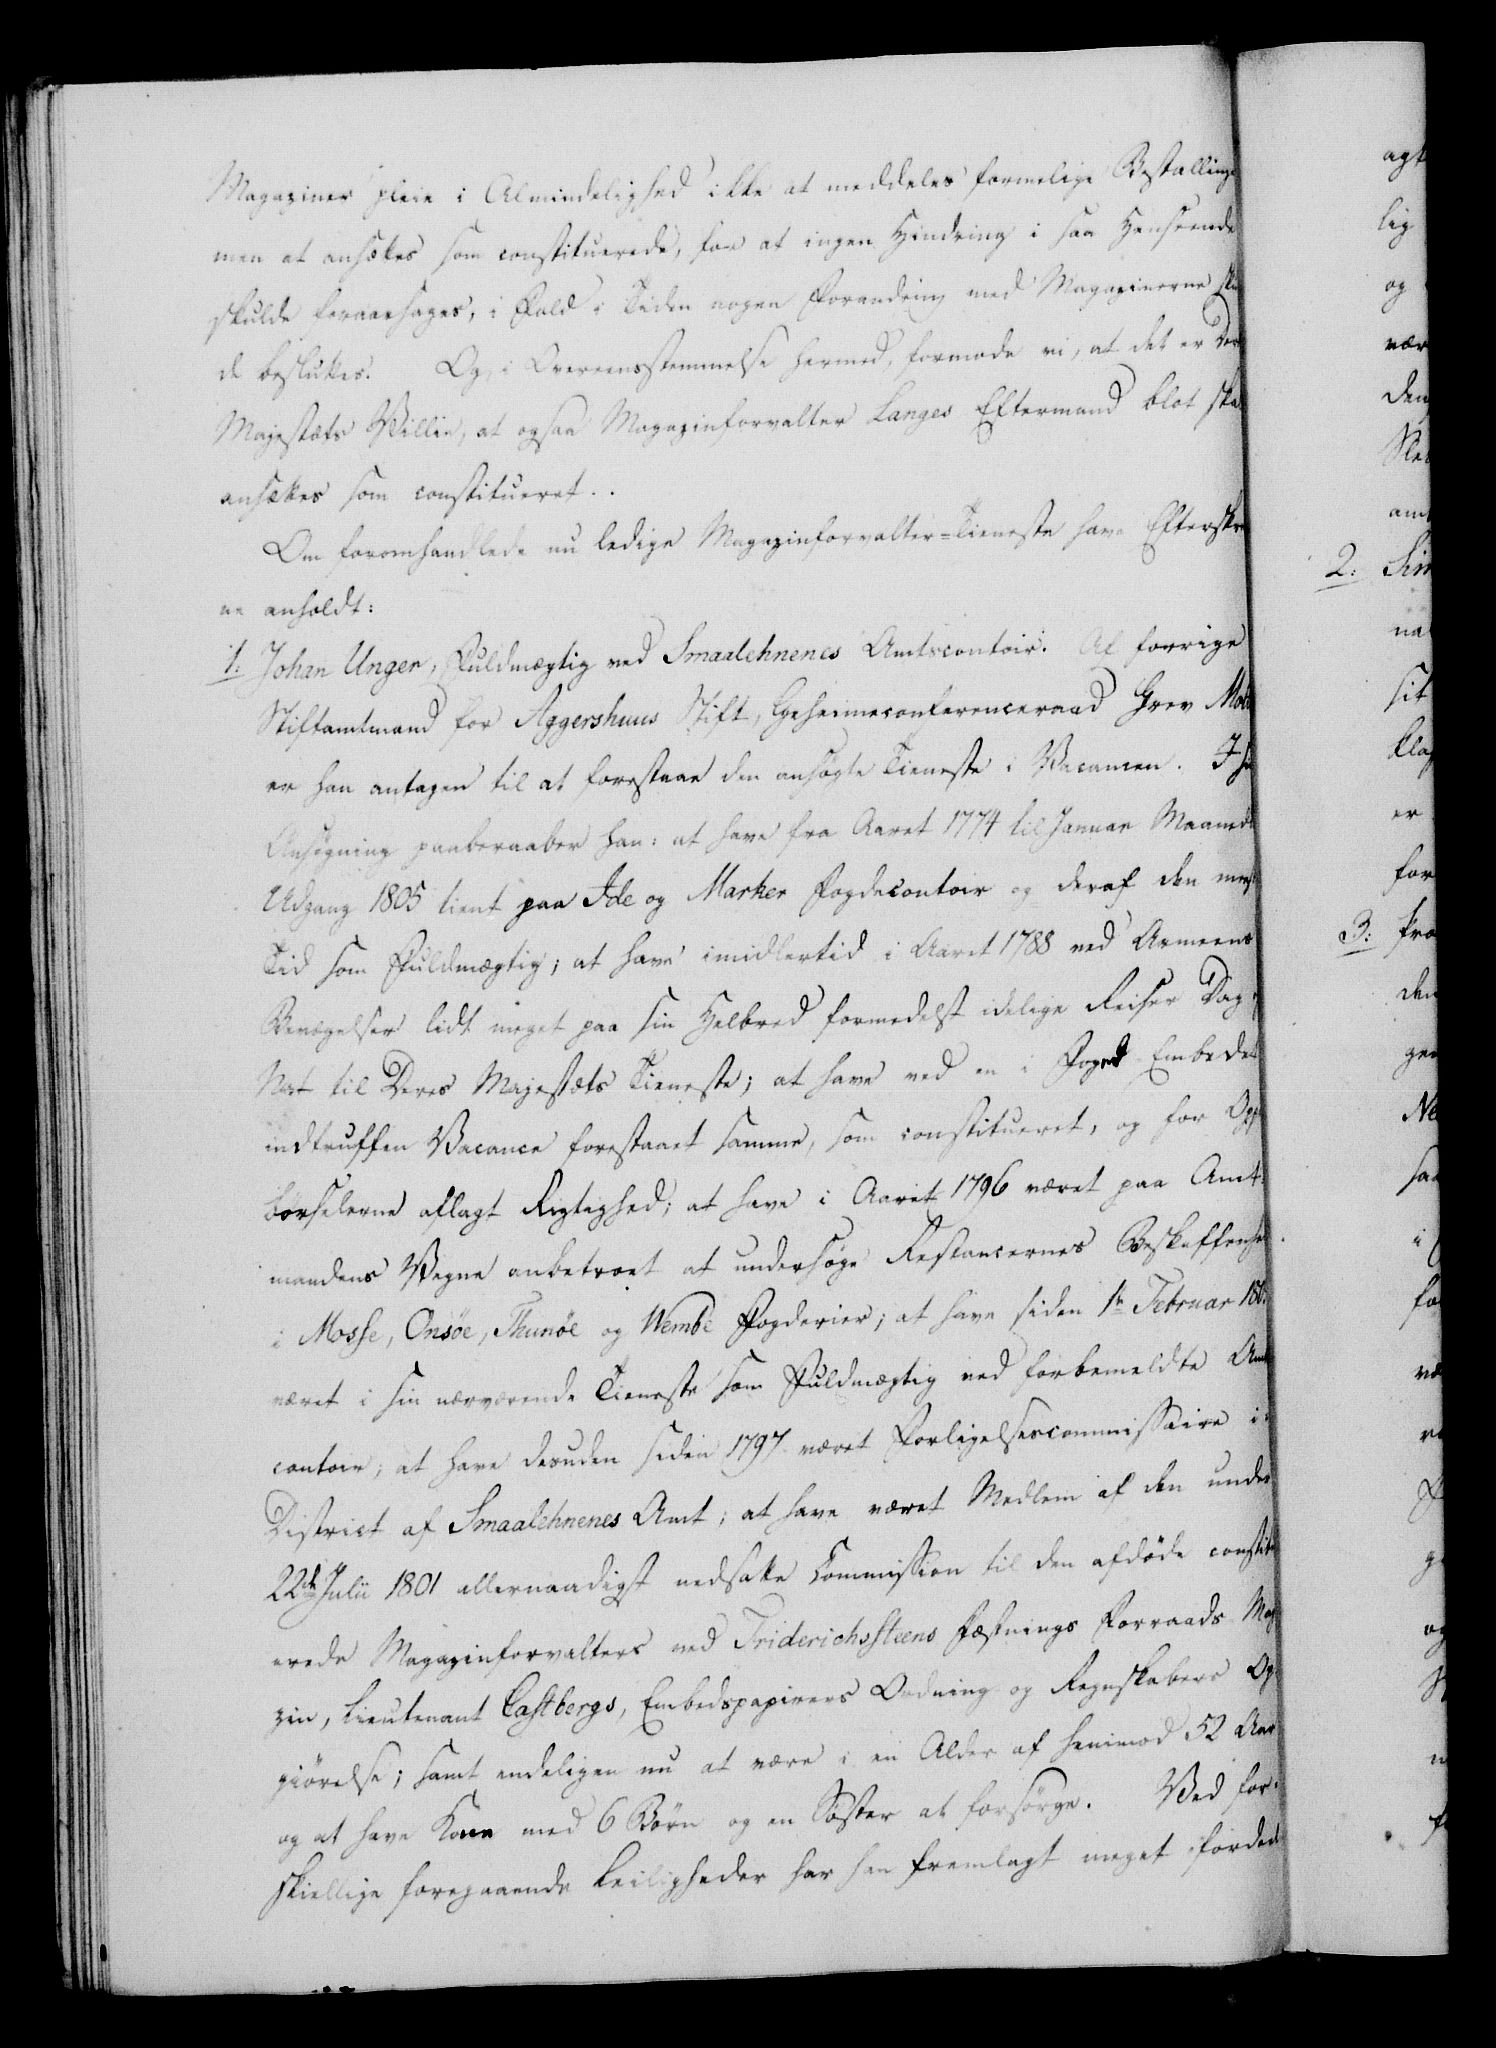 Magaziner pleie i Almindelighed ikke at meddeles formelige Bestallinge
men at ansættes som constituerede, for at ingen Hindring i saa Henseende
skulde foraarsages, i Fald i Tiden nogen Forandring med Magazinerne skul
de besluttes. Og, i Overeensstemmelse hermed, formode vi, at det er Der
Majestæts Villie, at ogsaa Magazinforvalter Langes Eftermand blot ska
ansættes som constitueret..
Om foromhandlede nu ledige Magazinforvalter-Tieneste have Efterskre
ne anholdt:
1. Johan Unger, Fuldmægtig ved Smaalehnenes Amtscontoir. Af forrige
Stiftamtmand for Aggershuus Stift, Geheimeconferenceraad Grev Mol
er han antagen til at forestaae den ansøgte Tieneste i Vacancen. I si
Ansøgning paaberaaber han: at have fra Aaret 1774 til Januar Maaneds
Udgang 1805 tient paa Ide og Marker Fogdecontoir og deraf den mest
Tid som Fuldmægtig; at have imidlertid i Aaret 1788 ved Armeens
Bevægelser lidt meget paa sin Helbred formedelst idelige Reiser Dag
Nat til Deres Majestæts Tieneste; at have ved en i Foged Embedet
indtruffen Vacance forestaaet samme, som constitueret, og for Opp
børselerne aflagt Rigtighed; at have i Aaret 1796 været paa Amt-
mandens Vegne anbetroet at undersøge Restancernes Beskaffenhe
i Mosse, Onsøe, Thunøe og Wembe Fogderier; at have siden 1te Februar 180
været i sin nærværende Tieneste som Fuldmægtig ved forbemeldte Amt
contoir; at have desuden siden 1797 været Forligelsescommissaire i
District af Smaalehnenes Amt; at have været Medlem af den under
22de Julii 1801 allernaadigst nedsatte Commission til den afdøde constitu
erede Magazinforvalters ved Friderichssteens Fæstnings Forraads Mag
zin, Lieutenant Castbergs, Embedspapirers Ordning og Regnskabers Op
giørelse; samt endeligen nu at være i en Alder af henimod 52 Aar
og at have Kone med 6 Børn og en Søster at forsørge. Ved for-
skiellige foregaaende Leiligheder har han fremlagt meget fordeel
agt
lig
og
vær
den
amt
2: Sim
na
sit
er
for
3:
den
ge
i